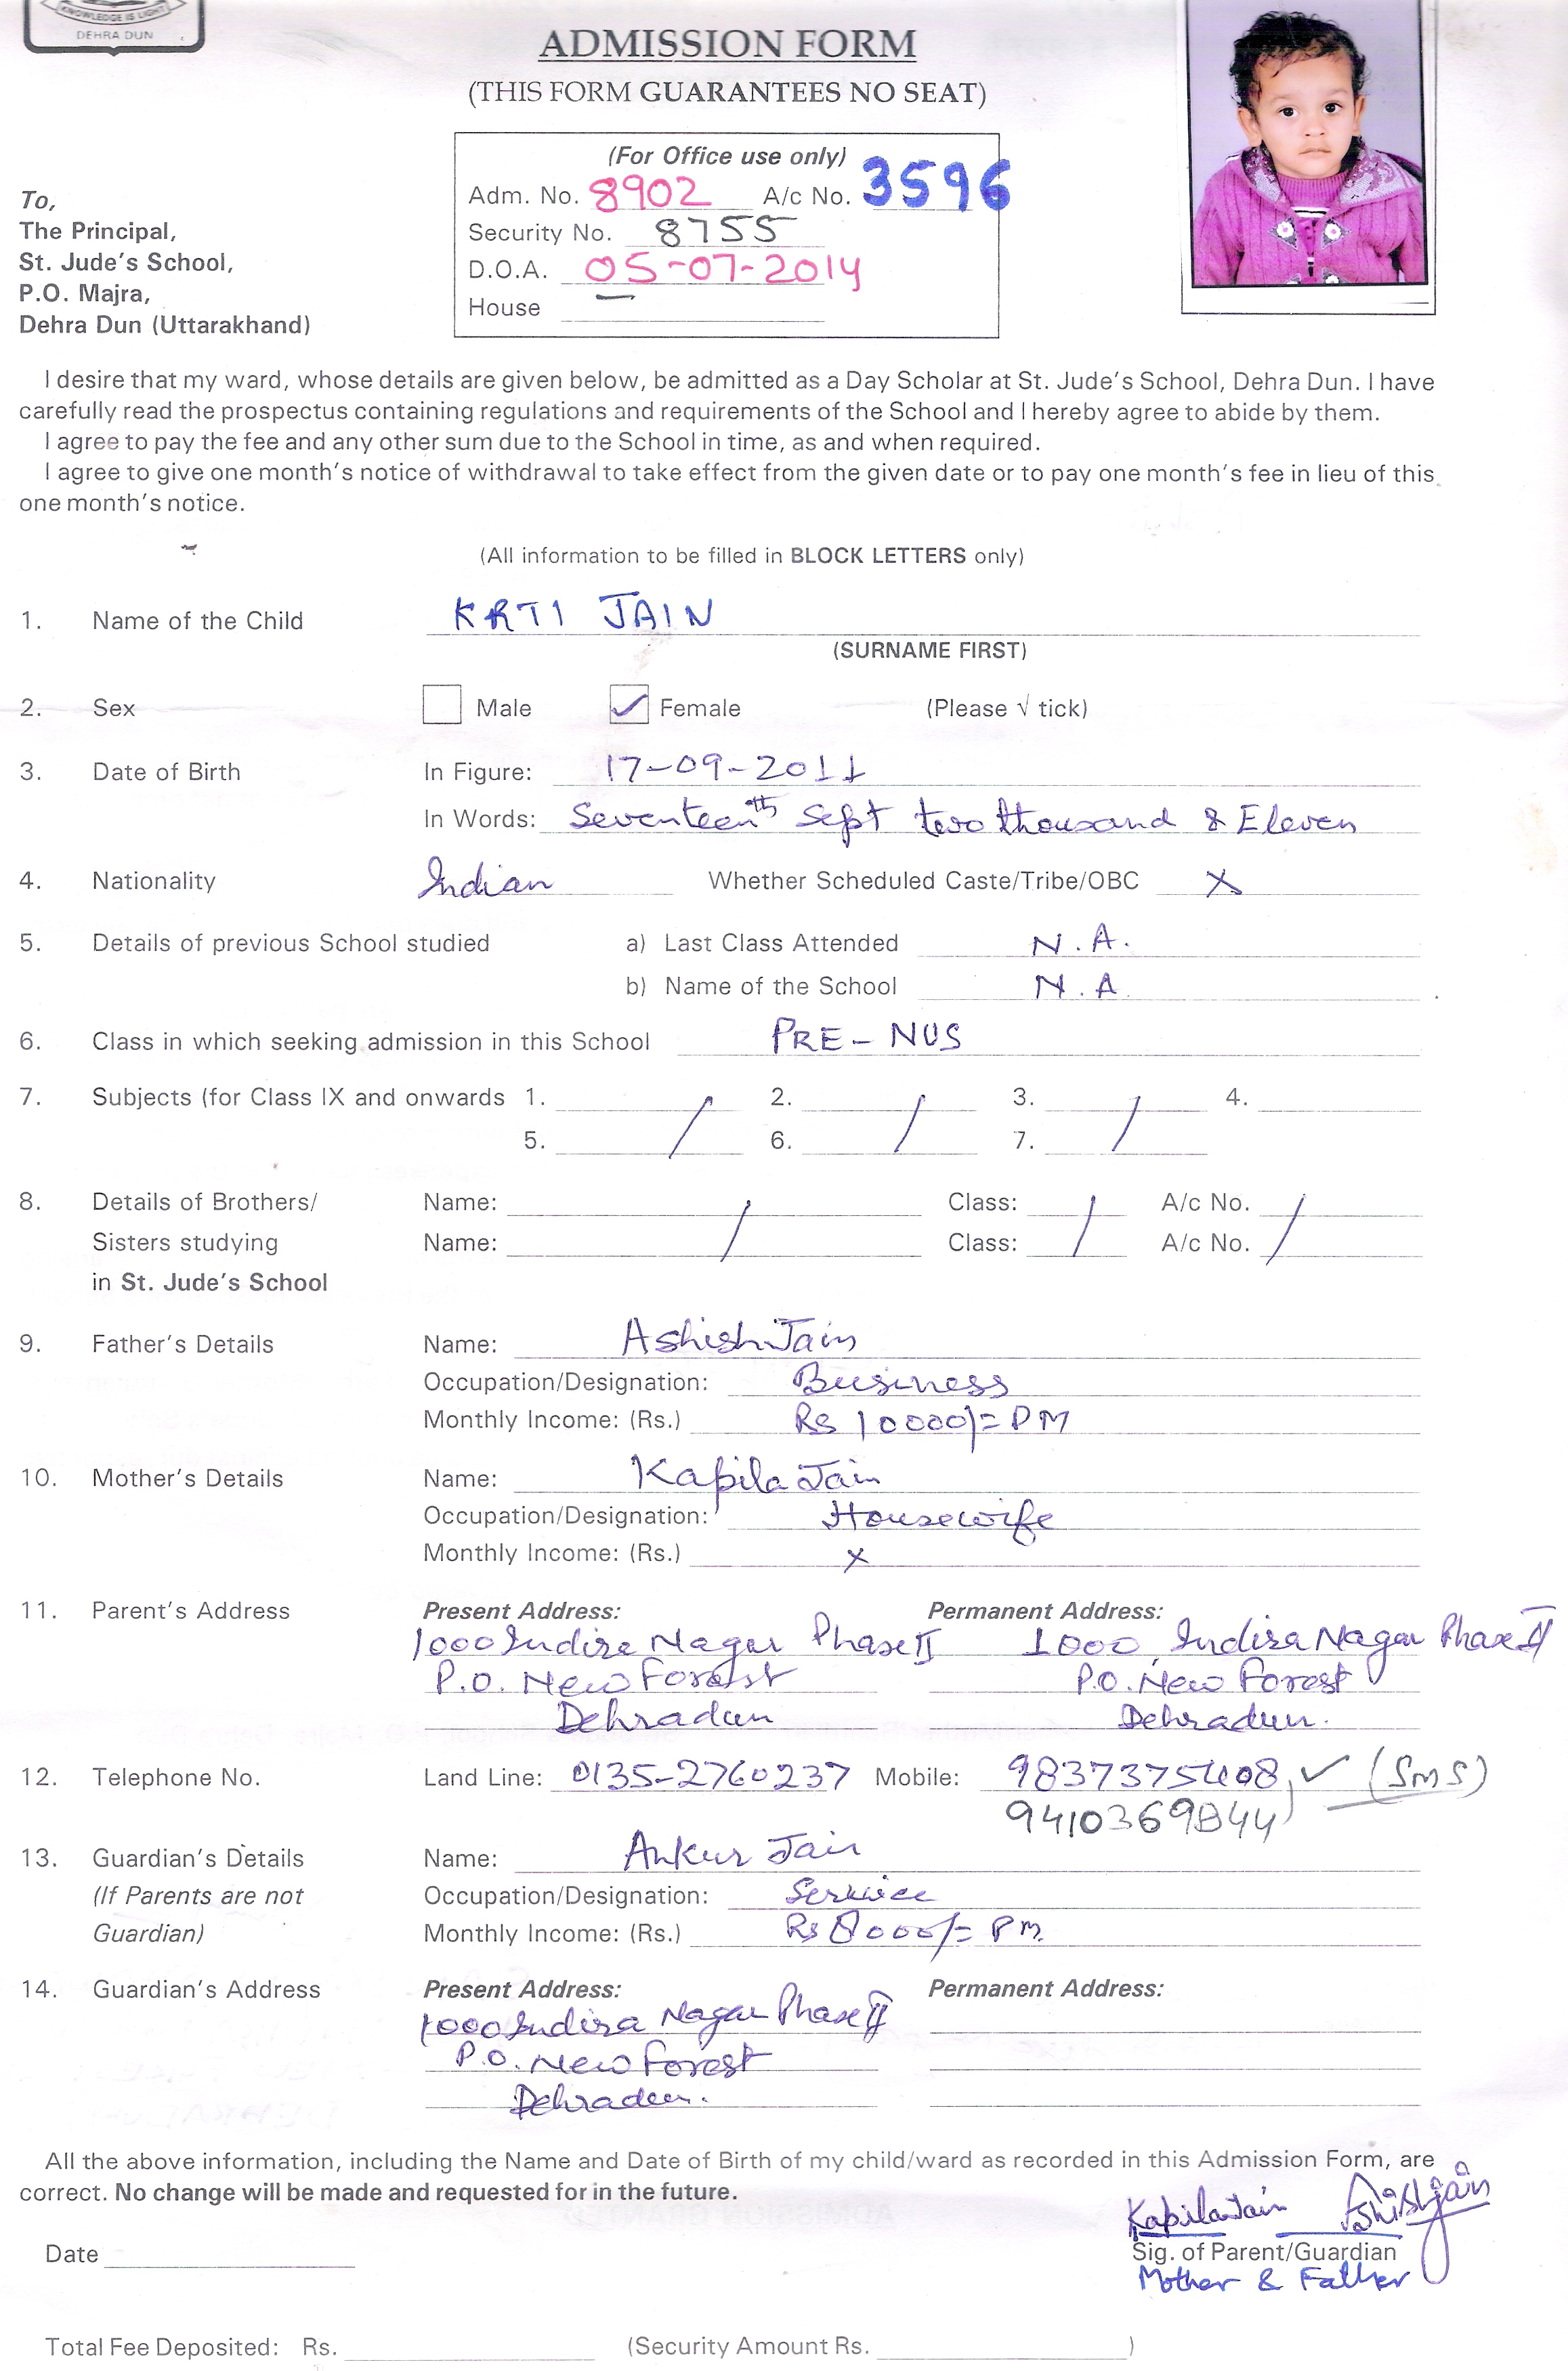 KNOWLEDGE IS LIGHT
DEHRA DUN
ADMISSION FORM
(THIS FORM GUARANTEES NO SEAT)
(For Office use only)
Adm. No. 8902 A/c No. 3596
Security No. 8755
D.O.A. 05-07-2014
House
To,
The Principal,
St. Jude's School,
P.O. Majra,
Dehra Dun (Uttarakhand)
I desire that my ward, whose details are given below, be admitted as a Day Scholar at St. Jude's School, Dehra Dun. I have
carefully read the prospectus containing regulations and requirements of the School and I hereby agree to abide by them.
I agree to pay the fee and any other sum due to the School in time, as and when required.
I agree to give one month's notice of withdrawal to take effect from the given date or to pay one month's fee in lieu of this
one month's notice.
(All information to be filled in BLOCK LETTERS only)
1. Name of the Child KRTI JAIN
(SURNAME FIRST)
2. Sex Male ✓ Female (Please √ tick)
3. Date of Birth In Figure: 17-09-2011
In Words: Seventeenth Sept two thousand & Eleven
4. Nationality Indian Whether Scheduled Caste/Tribe/OBC X
5. Details of previous School studied a) Last Class Attended N.A.
b) Name of the School N.A
6. Class in which seeking admission in this School PRE-NUS
7. Subjects (for Class IX and onwards 1. 2. 3. 4.
5. 6. 7.
8. Details of Brothers/ Name: Class: A/c No.
Sisters studying Name: Class: A/c No.
in St. Jude's School
9. Father's Details Name: Ashish Jain
Occupation/Designation: Business
Monthly Income: (Rs.) Rs 10000/= PM
10. Mother's Details Name: Kapila Jain
Occupation/Designation: Housewife
Monthly Income: (Rs.) X
11. Parent's Address Present Address: Permanent Address:
1000 Indira Nagar Phase II 1000, Indira Nagar Phase II
P.O. New Forest P.O. New Forest
Dehradun Dehradun.
12. Telephone No. Land Line: 0135-2760237 Mobile: ✓ (SMS)
9410369844
13. Guardian's Details Name: Ankur Jain
(If Parents are not Occupation/Designation: Service
Guardian) Monthly Income: (Rs.) Rs 8000/= PM.
14. Guardian's Address Present Address: Permanent Address:
1000 Indira Nagar Phase II
P.O. New Forest
Dehradun.
All the above information, including the Name and Date of Birth of my child/ward as recorded in this Admission Form, are
correct. No change will be made and requested for in the future.
Kapila Jain Ashish Jain
Date Sig. of Parent/Guardian
Mother & Father
Total Fee Deposited: Rs. (Security Amount Rs. )